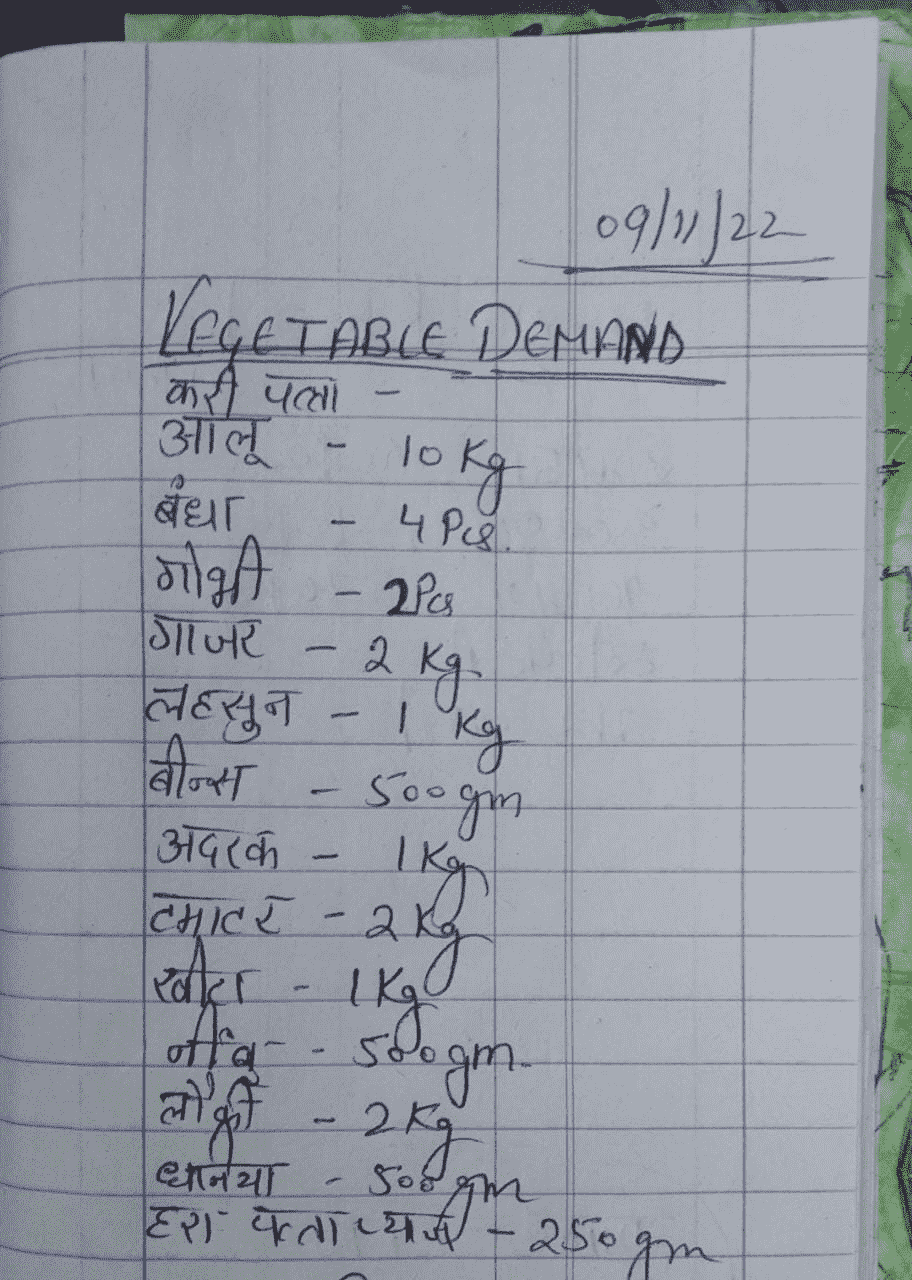 09/11/22
VEGETABLE DEMAND
करी पत्ता -
आलू - 10 Kg
बंधा - 4 Pcs.
गोभी - 2 Pcs
गाजर - 2 Kg
लहसुन - 1 Kg
बीन्स - 500 gm
अदरक - 1 Kg
टमाटर - 2 Kg
खीरा - 1 Kg
नींबु - 500 gm.
लौकी - 2 Kg
धनिया - 500 gm
हरा पत्ता प्याज - 250 gm